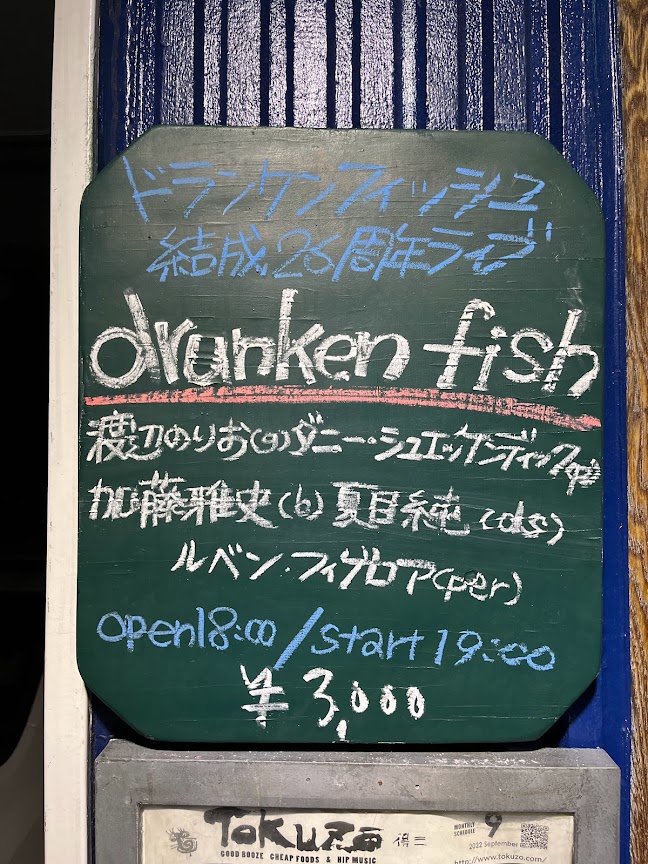 ドランケンフィッシュ
結成26周年ライブ
drunken fish
渡辺のりお(g)ダニー・シュエッケンディック(p)
加藤雅史(b)夏目純(ds)
ルベン・フィゲロア(per)
open18:00/start 19:00
¥3,000
Tokuzo 得三
GOOD BOOZE CHEAP FOODS & HIP MUSIC
MONTHLY SCHEDULE 9
2022 September
http://www.tokuzo.com